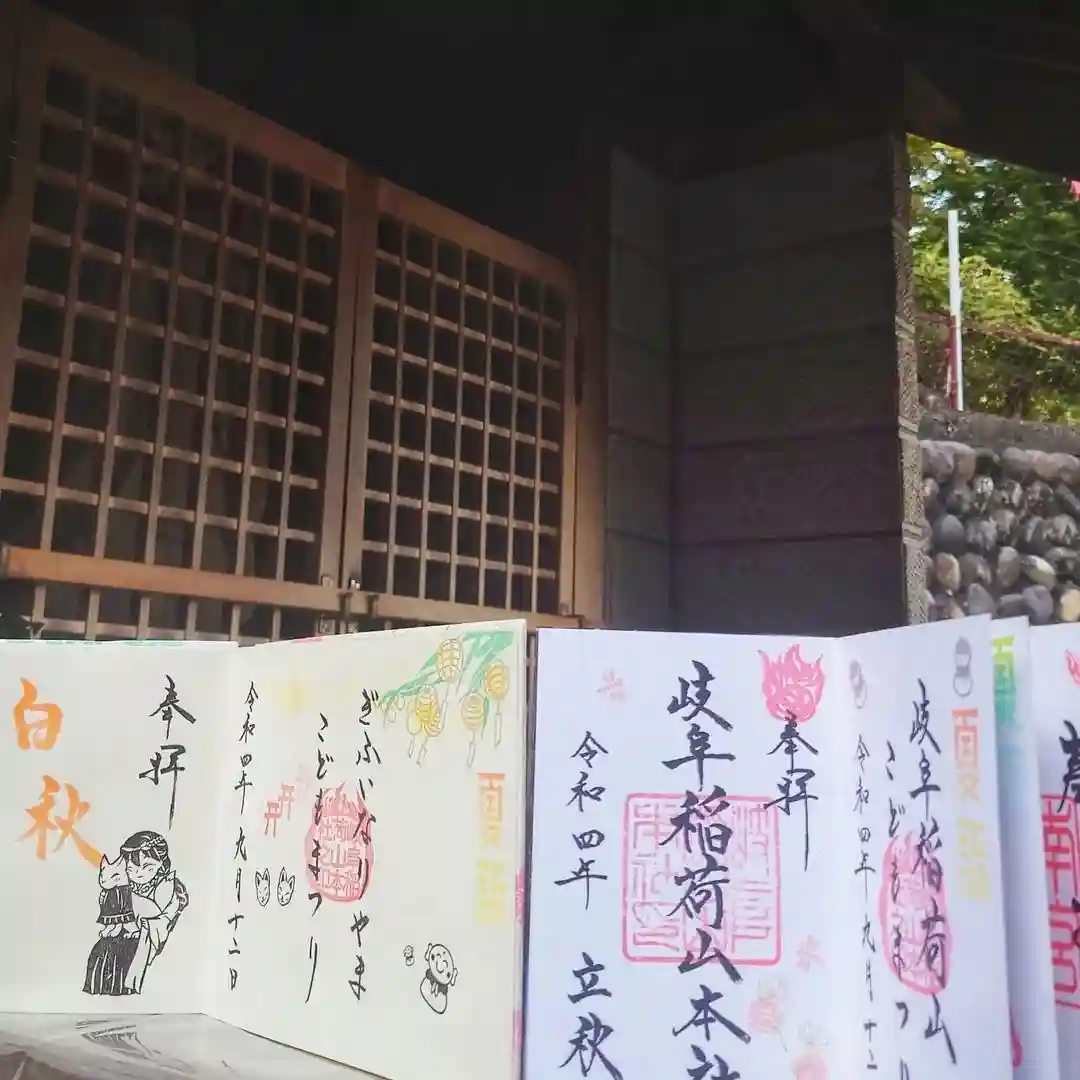 奉拝
白秋
ぎふいなりやま
こどもまつり
令和四年九月十二日
夏詣
奉拝
岐阜稲荷山本社
令和四年 立秋
夏詣
岐阜稲荷山
こどもまつり
令和四年九月十二